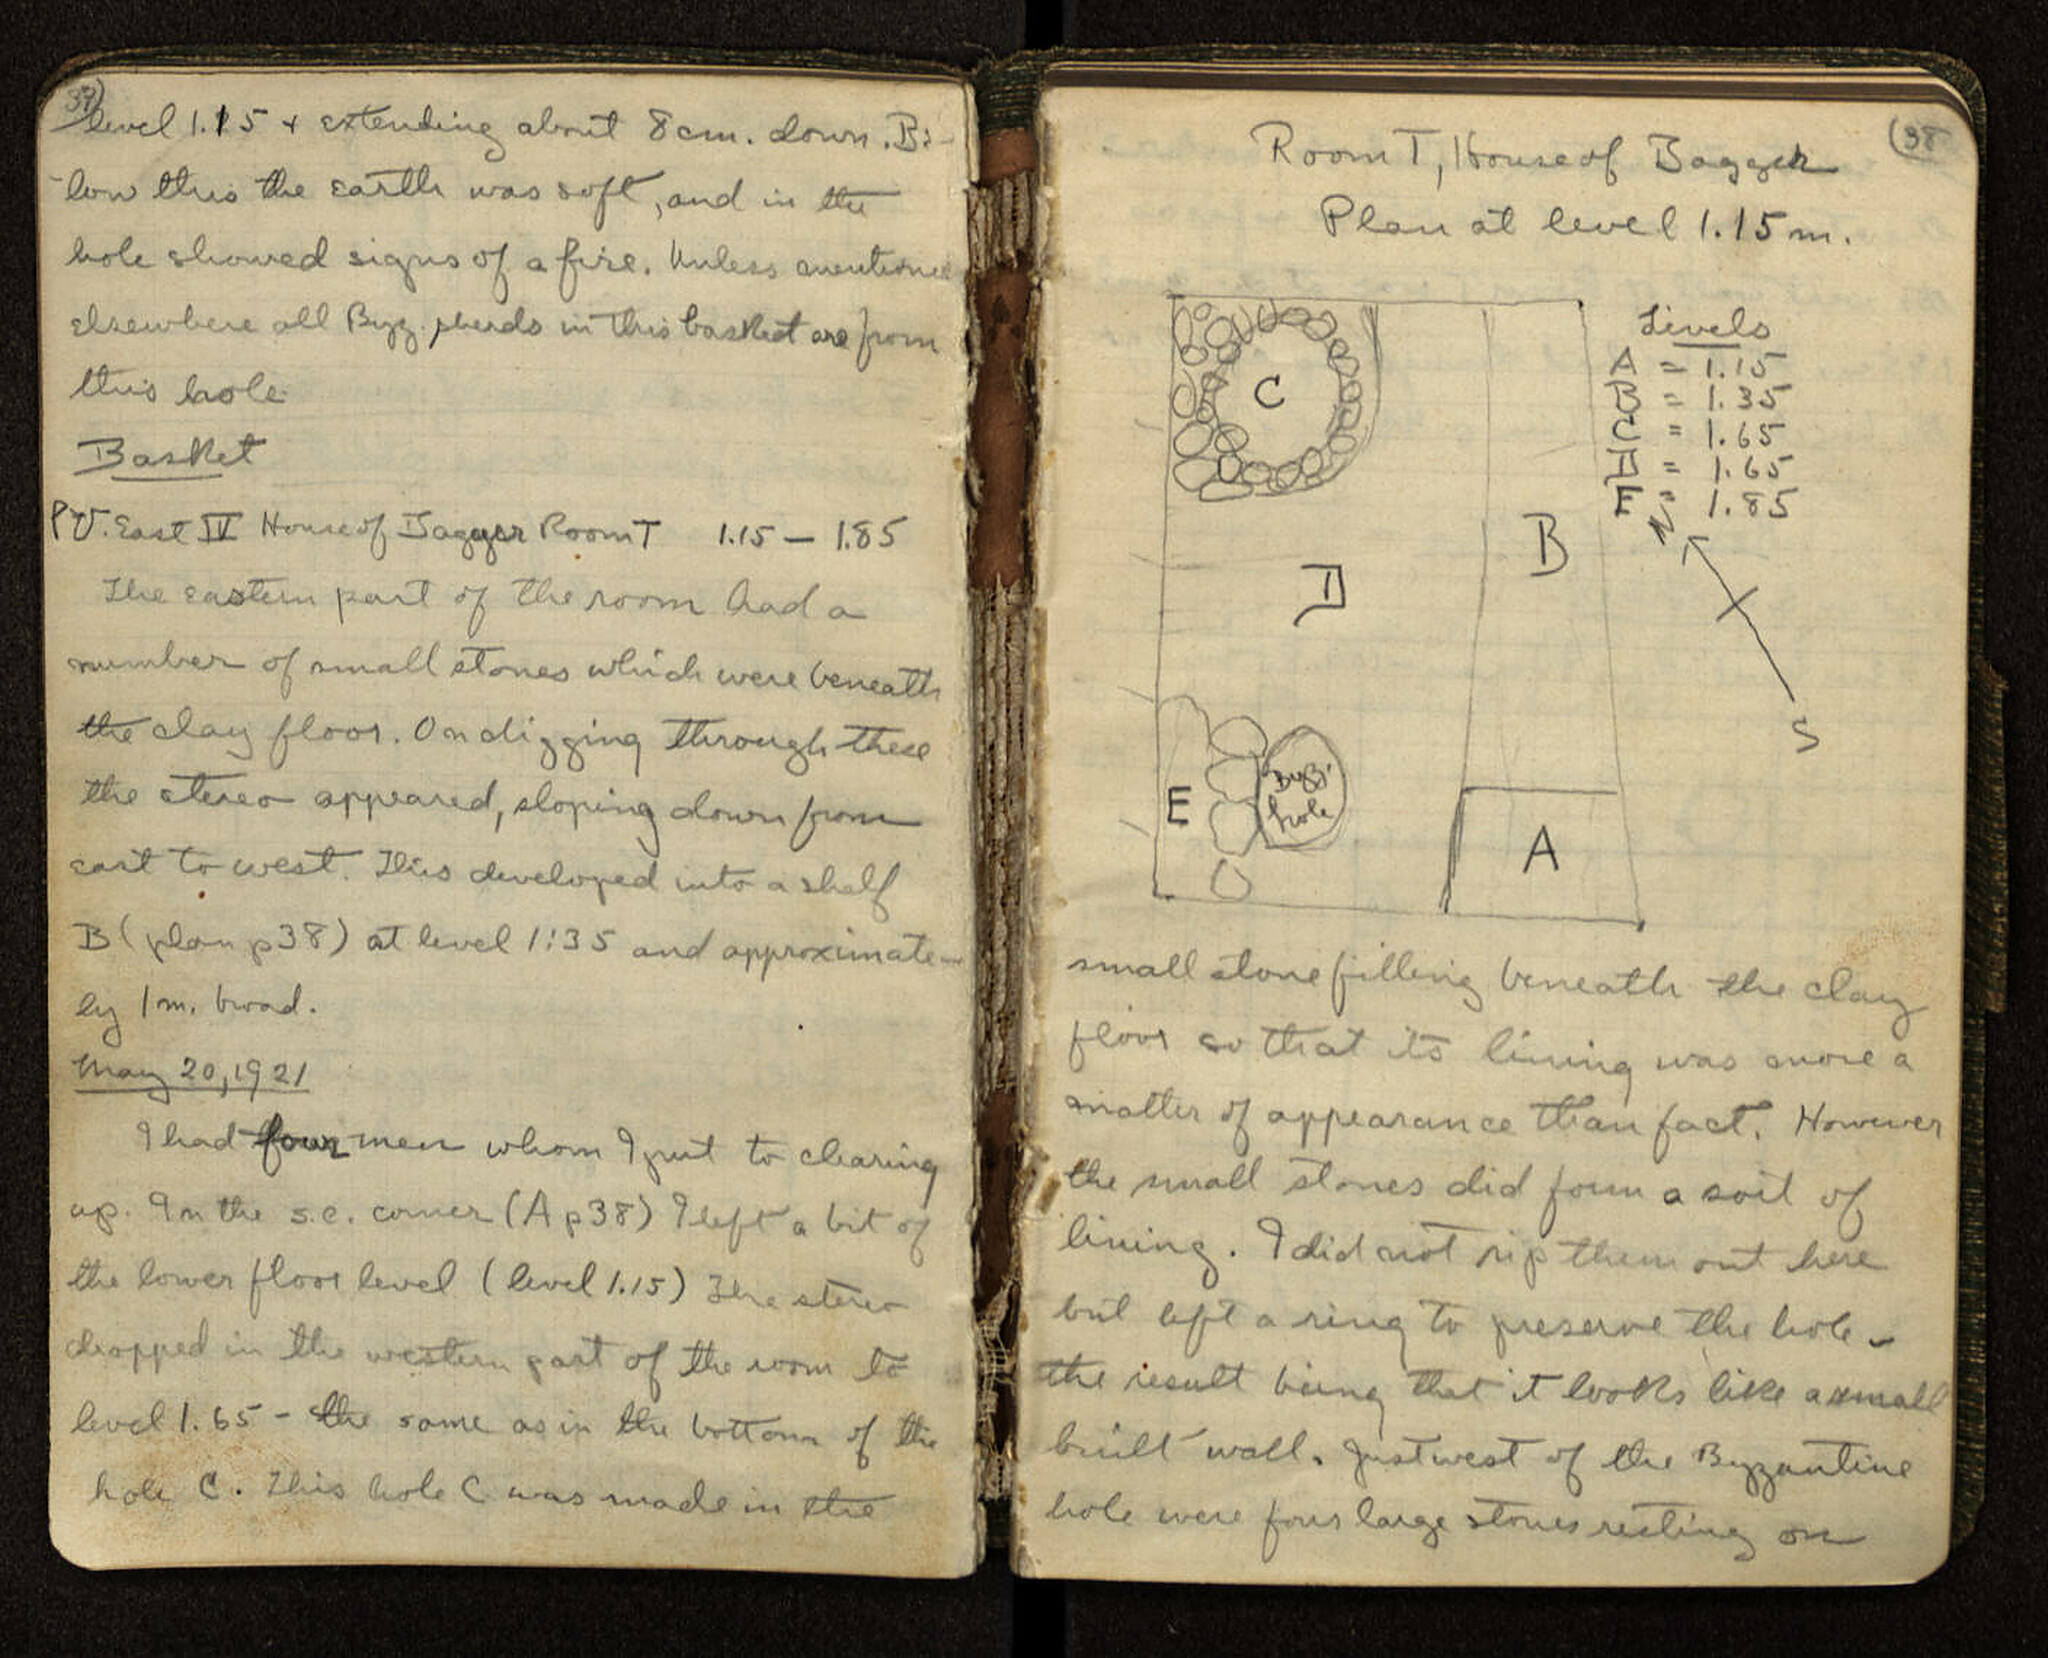 37)
level 1.15 + extending about 8 cm. down. Be-
low this the earth was soft, and in the
hole showed signs of a fire. Unless mentioned
elsewhere all Byz. sherds in this basket are from
this hole.
Basket
PV. East IV House of Dagger Room T 1.15 — 1.85
The eastern part of the room had a
number of small stones which were beneath
the clay floor. On digging through these
the stereo appeared, sloping down from
east to west. This developed into a shelf
B (plan p 38) at level 1:35 and approximate-
ly 1 m. broad.
May 20, 1921
I had four men whom I put to clearing
up. In the s.e. corner (A p 38) I left a bit of
the lower floor level (level 1.15) The stereo
dropped in the western part of the room to
level 1.65 - the same as in the bottom of the
hole C. This hole C was made in the
(38
Room T, House of Dagger
Plan at level 1.15 m.
Levels
A = 1.15
B = 1.35
C = 1.65
D = 1.65
E = 1.85
N
S
C
B
D
E
Byz.
hole
A
small stone filling beneath the clay
floor so that its lining was more a
matter of appearance than fact. However
the small stones did form a sort of
lining. I did not rip them out here
but left a ring to preserve the hole -
the result being that it looks like a small
built wall. Just west of the Byzantine
hole were four large stones resting on